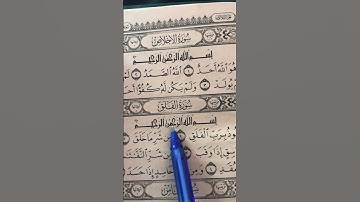 سُورَةُ الْإِخْلَاصِ
بِسْمِ اللَّهِ الرَّحْمَٰنِ الرَّحِيمِ
هُوَ اللَّهُ أَحَدٌ اللَّهُ الصَّمَدُ
وَلَمْ يَكُن لَّهُ كُفُوًا
سُورَةُ الْفَلَقِ
بِسْمِ اللَّهِ الرَّحْمَٰنِ الرَّحِيمِ
بِرَبِّ الْفَلَقِ مِن شَرِّ مَا خَلَقَ
إِذَا وَقَبَ شَرِّ
إِذَا حَسَدَ